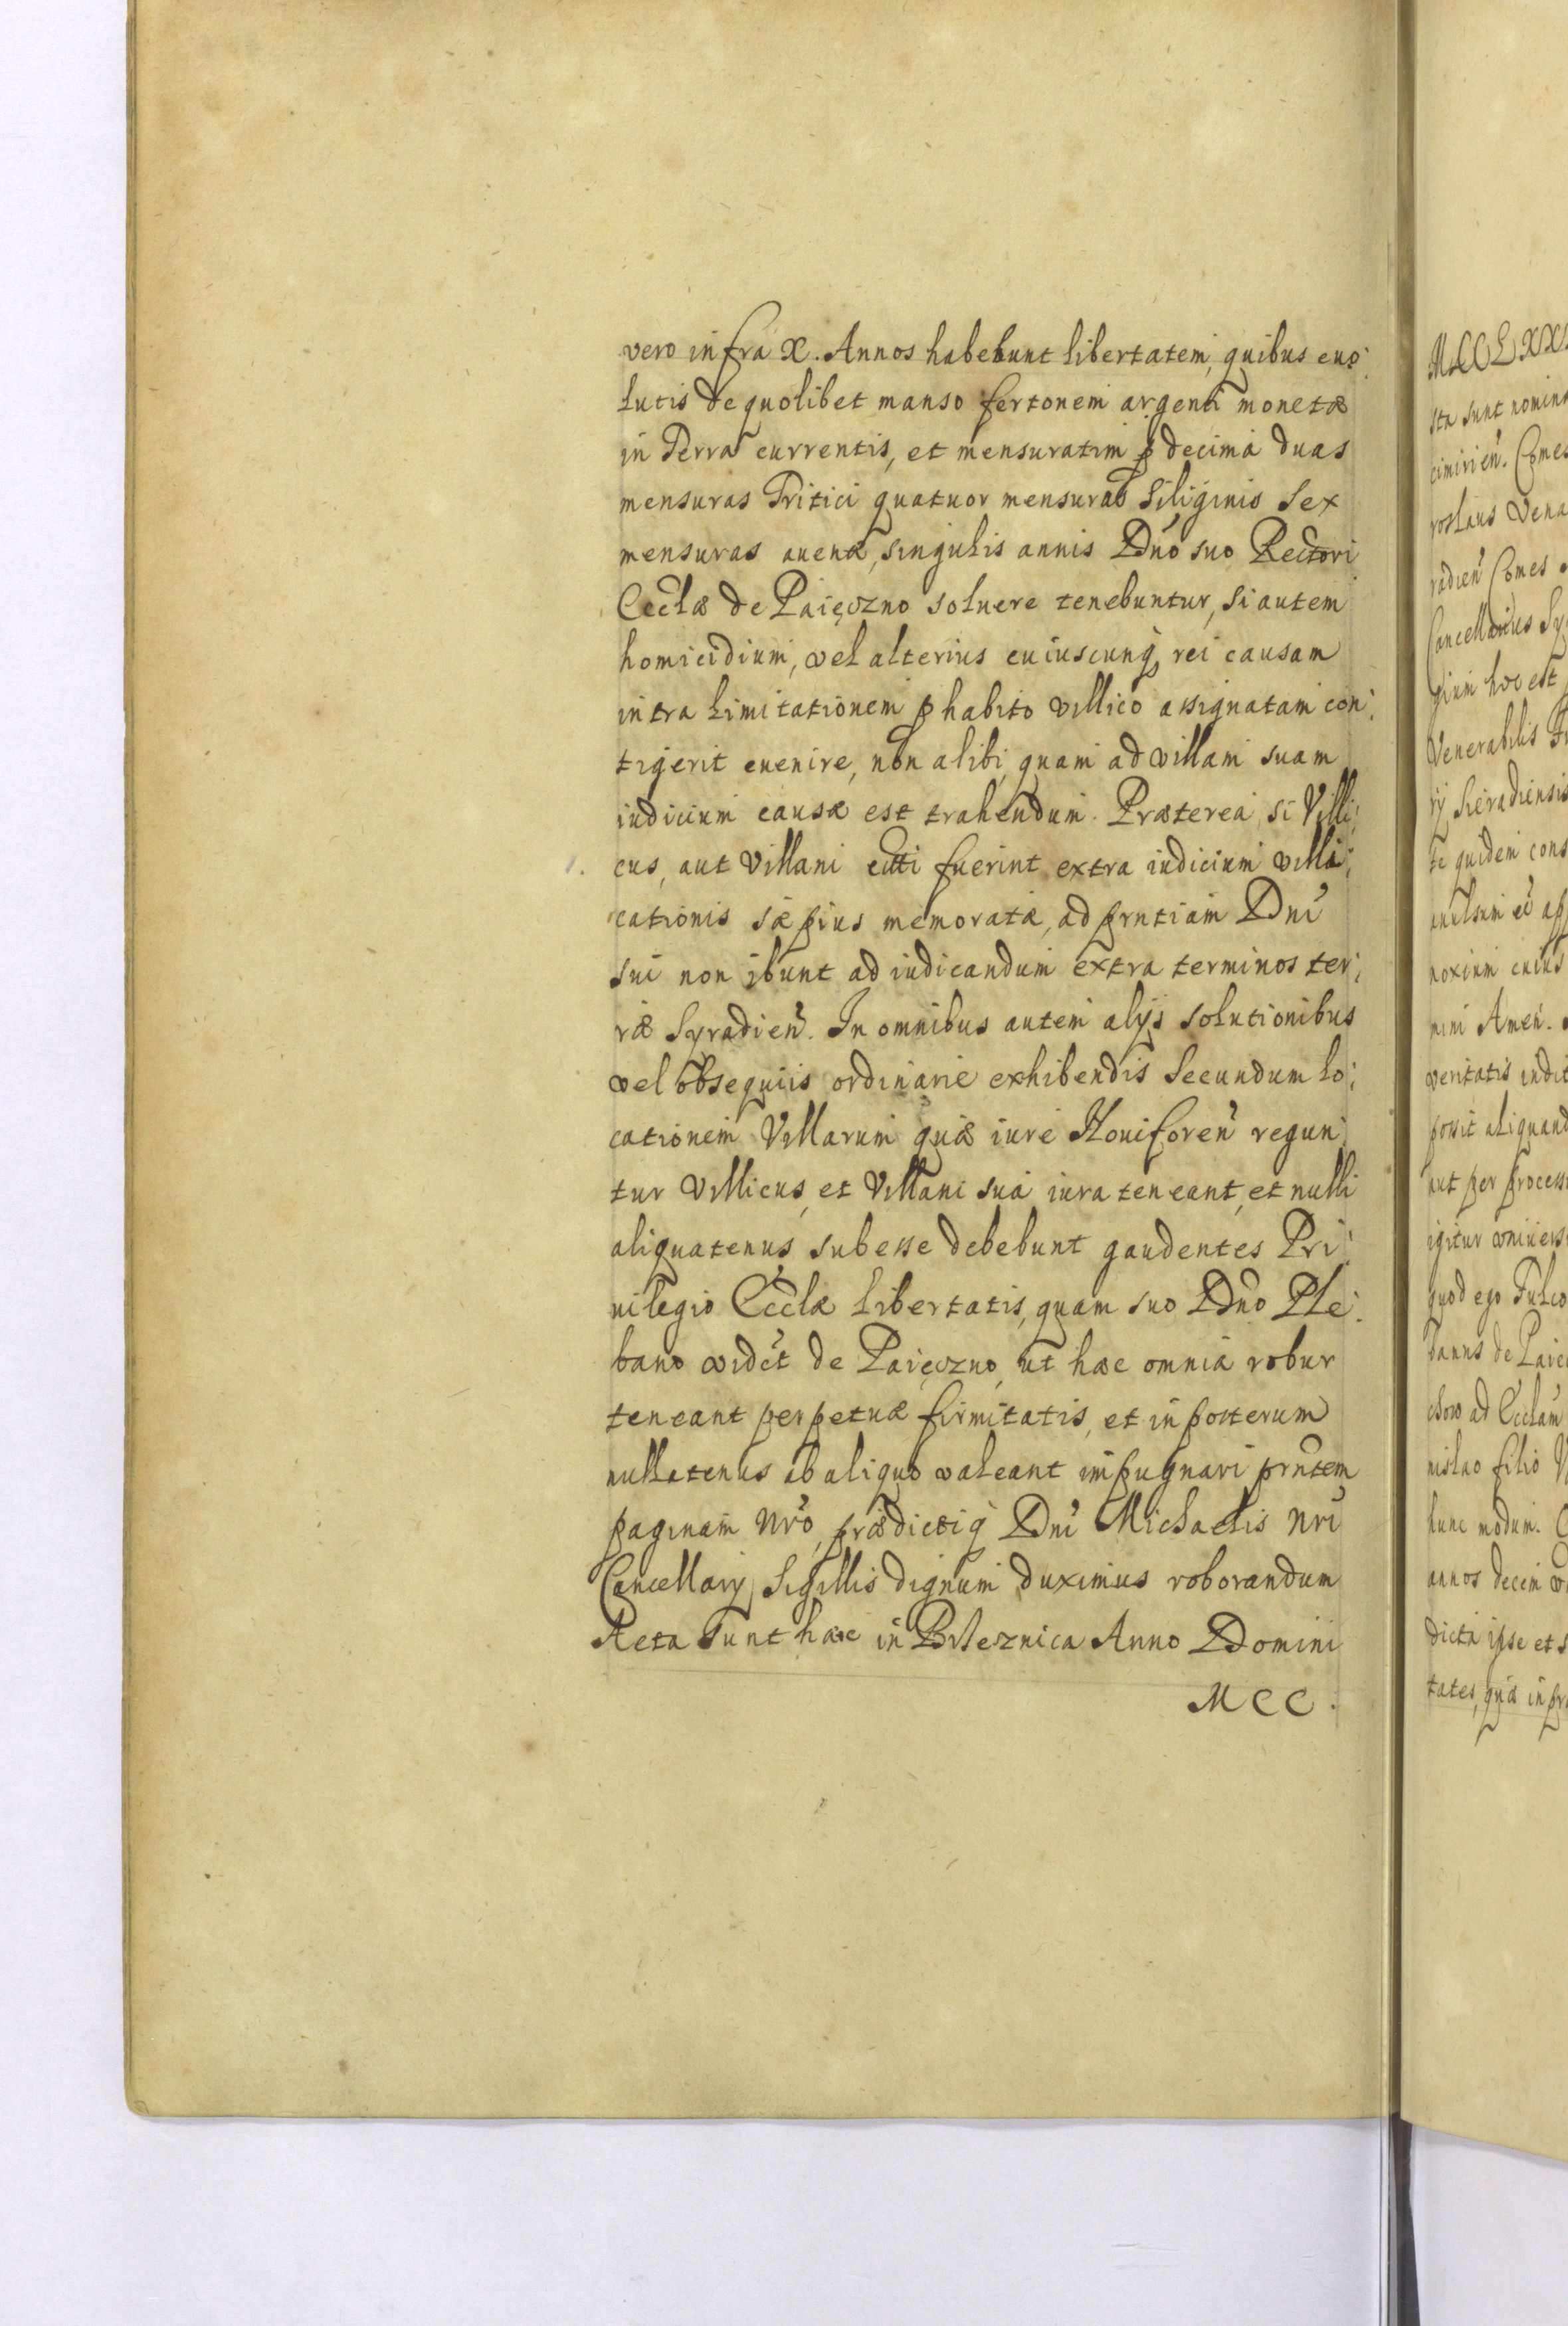 vero infra X. Annos habebunt libertatem, quibus euo:
lutis de quolibet manso fertonem argenti monetæ
in Terra currentis, et mensuratim p decima duas
mensuras Tritici quatuor mensuras Siliginis Sex
mensuras auenæ, singulis annis Dno suo Rectori
Ecclæ de Paięczno soluere tenebuntur, Si autem
homicidium, vel alterius cuiuscunq rei causam
intra limitationem p habito villico assignatam con:
tigerit euenire, non alibi, quam ad villam suam
iudicium causæ est trahendum. Præterea, si Villi:
cus, aut Villani citti fuerint extra iudicium villi:
cationis sæpius memoratæ, ad prntiam Dni
sui non ibunt ad iudicandum extra terminos ter:
ræ Syradien. In omnibus autem alijs solutionibus
vel obsequiis ordinarie exhibendis Secundum lo:
cationem Villarum quæ iure Nouiforen regun:
tur Villicus, et Villani sua iura teneant, et nulli
aliquatenus subesse debebunt gaudentes Pri:
uilegio Ecclæ libertatis, quam suo Dno Ple:
bano vidēt de Paięczno, ut hæc omnia robur
teneant perpetuæ firmitatis, et in posterum
nullatenus ab aliquo valeant impugnari prntem
paginam Nro, prædictiq Dni Michaelis Nri
Cancellarij Sigillis dignum duximus roborandum
Acta sunt hæc in Brzeznica Anno Domini
MCC.
sta sunt nomina
Comes
roslaus Vena
radien Comes
Cancellarius Sy
gium hoc est
Venerabilis
ry Sieradiensis
te quidem cons
noxium cuius
mini Amen.
veritatis indi
possit aliquand
aut per process
igitur vniuers
quod ego Fulco
banus de Paie
ad Ecclam
nislao filio
hunc modum.
annos decem
dicta ipse et s
tates, quæ in